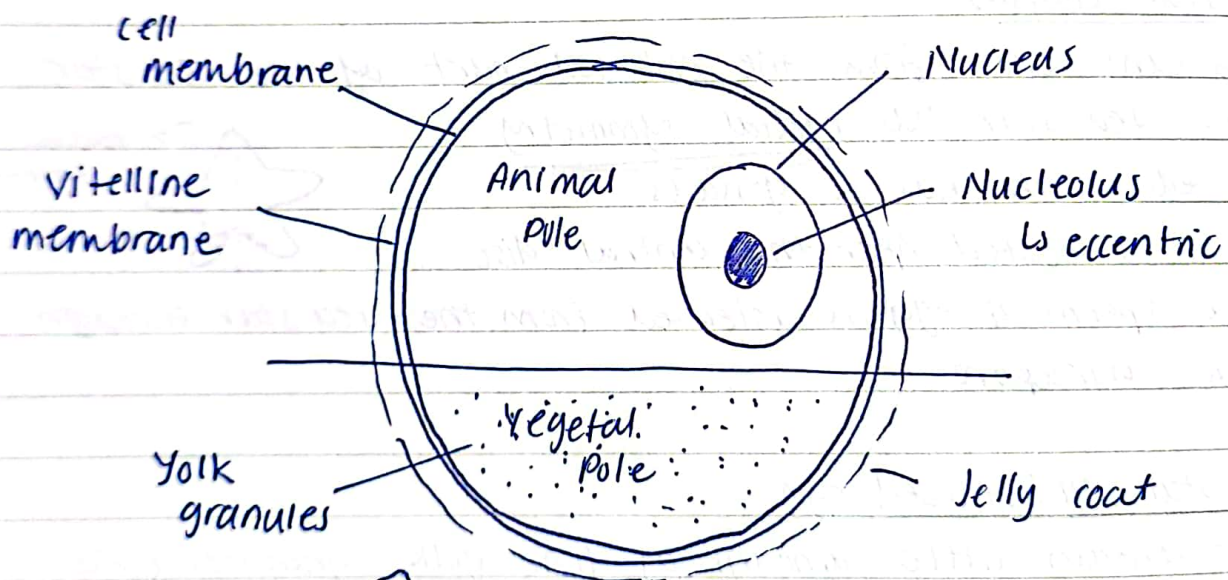 Cell
membrane
Nucleus
Vitelline
membrane
Animal
Pole
Nucleolus
↳ eccentric
Vegetal
Pole
Yolk
granules
Jelly coat